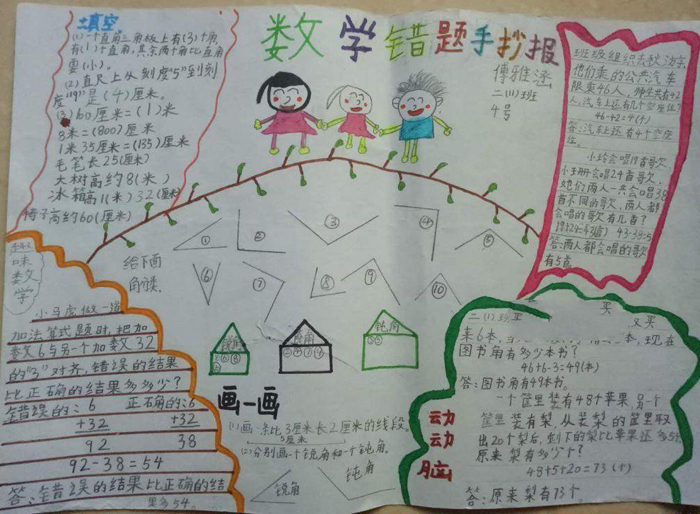 数学错题手抄报
傅雅涵
二(11)班
4号
填空
(1)一个直角三角板上有(3)个角
有(1)个直角,其余两个角比直角
要(小)。
(2)直尺上从刻度"5"到刻
度"9"是(4)厘米。
(3)60厘米=(1)米
8米=(800)厘米
1米35厘米=(135)厘米
毛笔长25(厘米)
大树高约8(米)
冰箱高1(米)32(厘米)
椅子高约60(厘米)
班级组织去秋游,
他们乘的公共汽车
限乘46人,师生共有42
人,汽车上还有几个空座位?
46-42=4(个)
答:汽车上还有4个空座位。
小玲会唱19首歌,
小
会唱24首歌,
她们两人一共会唱38
首不同的歌,两人都
会唱的歌有几首?
19+24=43(首) 43-38=5
答:两人都会唱的歌
有5首
给下面
角
① ② ③ ④ ⑤
⑥ ⑦ ⑧ ⑨ ⑩
锐角
直角
钝角
趣味数学
小马虎做一道
加法算式题时,把加
数6与另一个加数32
的"3"对齐,错误的结果
比正确的结果多多少?
错误的:6 正确的:6
+32 +32
92 38
92-38=54
答:错误的结果比正确的结
果多54。
画一画
(1)画一条比3厘米长2厘米的线段。
5厘米
(2)分别画一个锐角和一个钝角。
锐角 钝角
动动脑
二(11)班 买 又买
来6本, 本,现在
图书角有多少本书?
46+6-3=49(本)
答:图书角有49本书。
一个筐里装有48个苹果,另一个
筐里装有梨,从装梨的筐里取
出20个梨后,剩下的梨比苹果还多5个
原来梨有多少个?
48+5+20=73(个)
答:原来梨有73个。